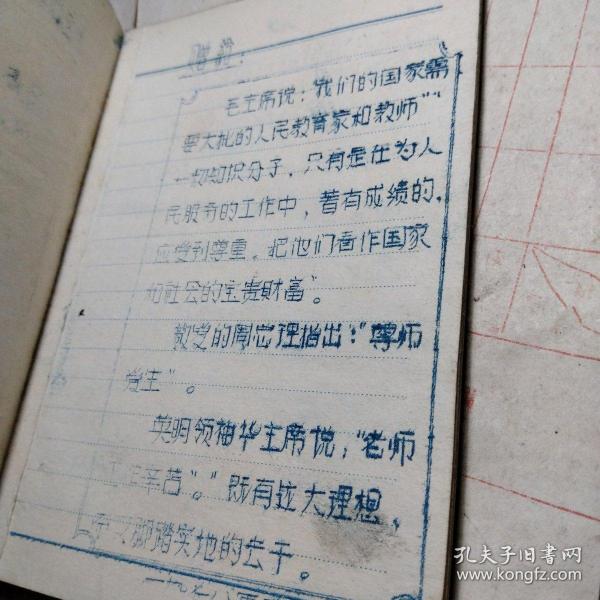 毛主席说：我们的国家需
要大批的人民教育家和教师""
一切知识分子，只有是在为人
民服务的工作中，著有成绩的，
应受到尊重，把他们看作国家
和社会的宝贵财富"。
敬爱的周总理指出："尊师
爱生"。
英明领袖华主席说："老师
辛苦"。"既有远大理想，
脚踏实地的去干。
孔夫子旧书网
www.kongfz.com